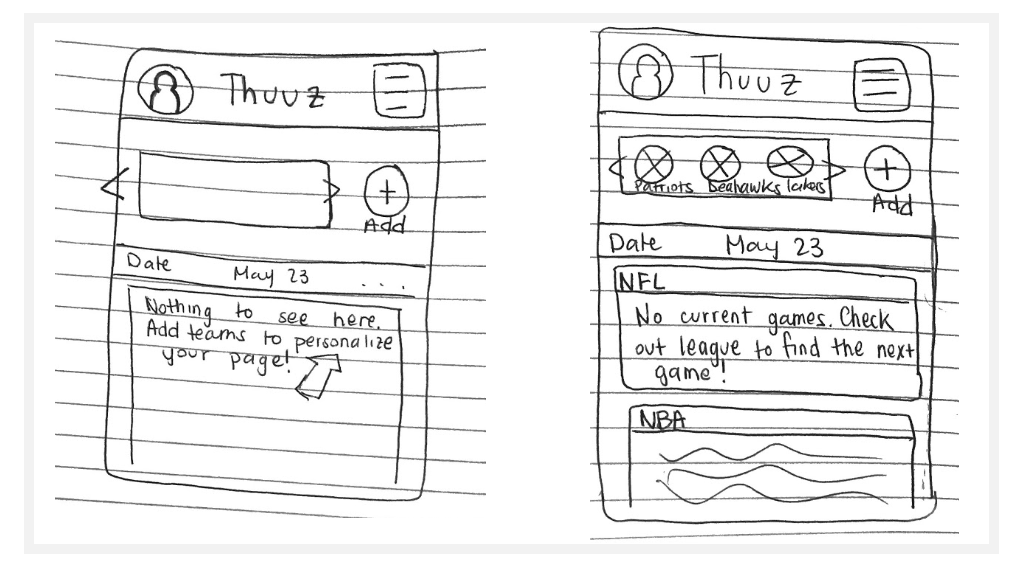 Thuuz
Add
Date May 23 . . . .
Nothing to see here.
Add teams to personalize
your page!
Thuuz
Patriots Seahawks lakers
Add
Date May 23
NFL
No current games. Check
out league to find the next
game!
NBA